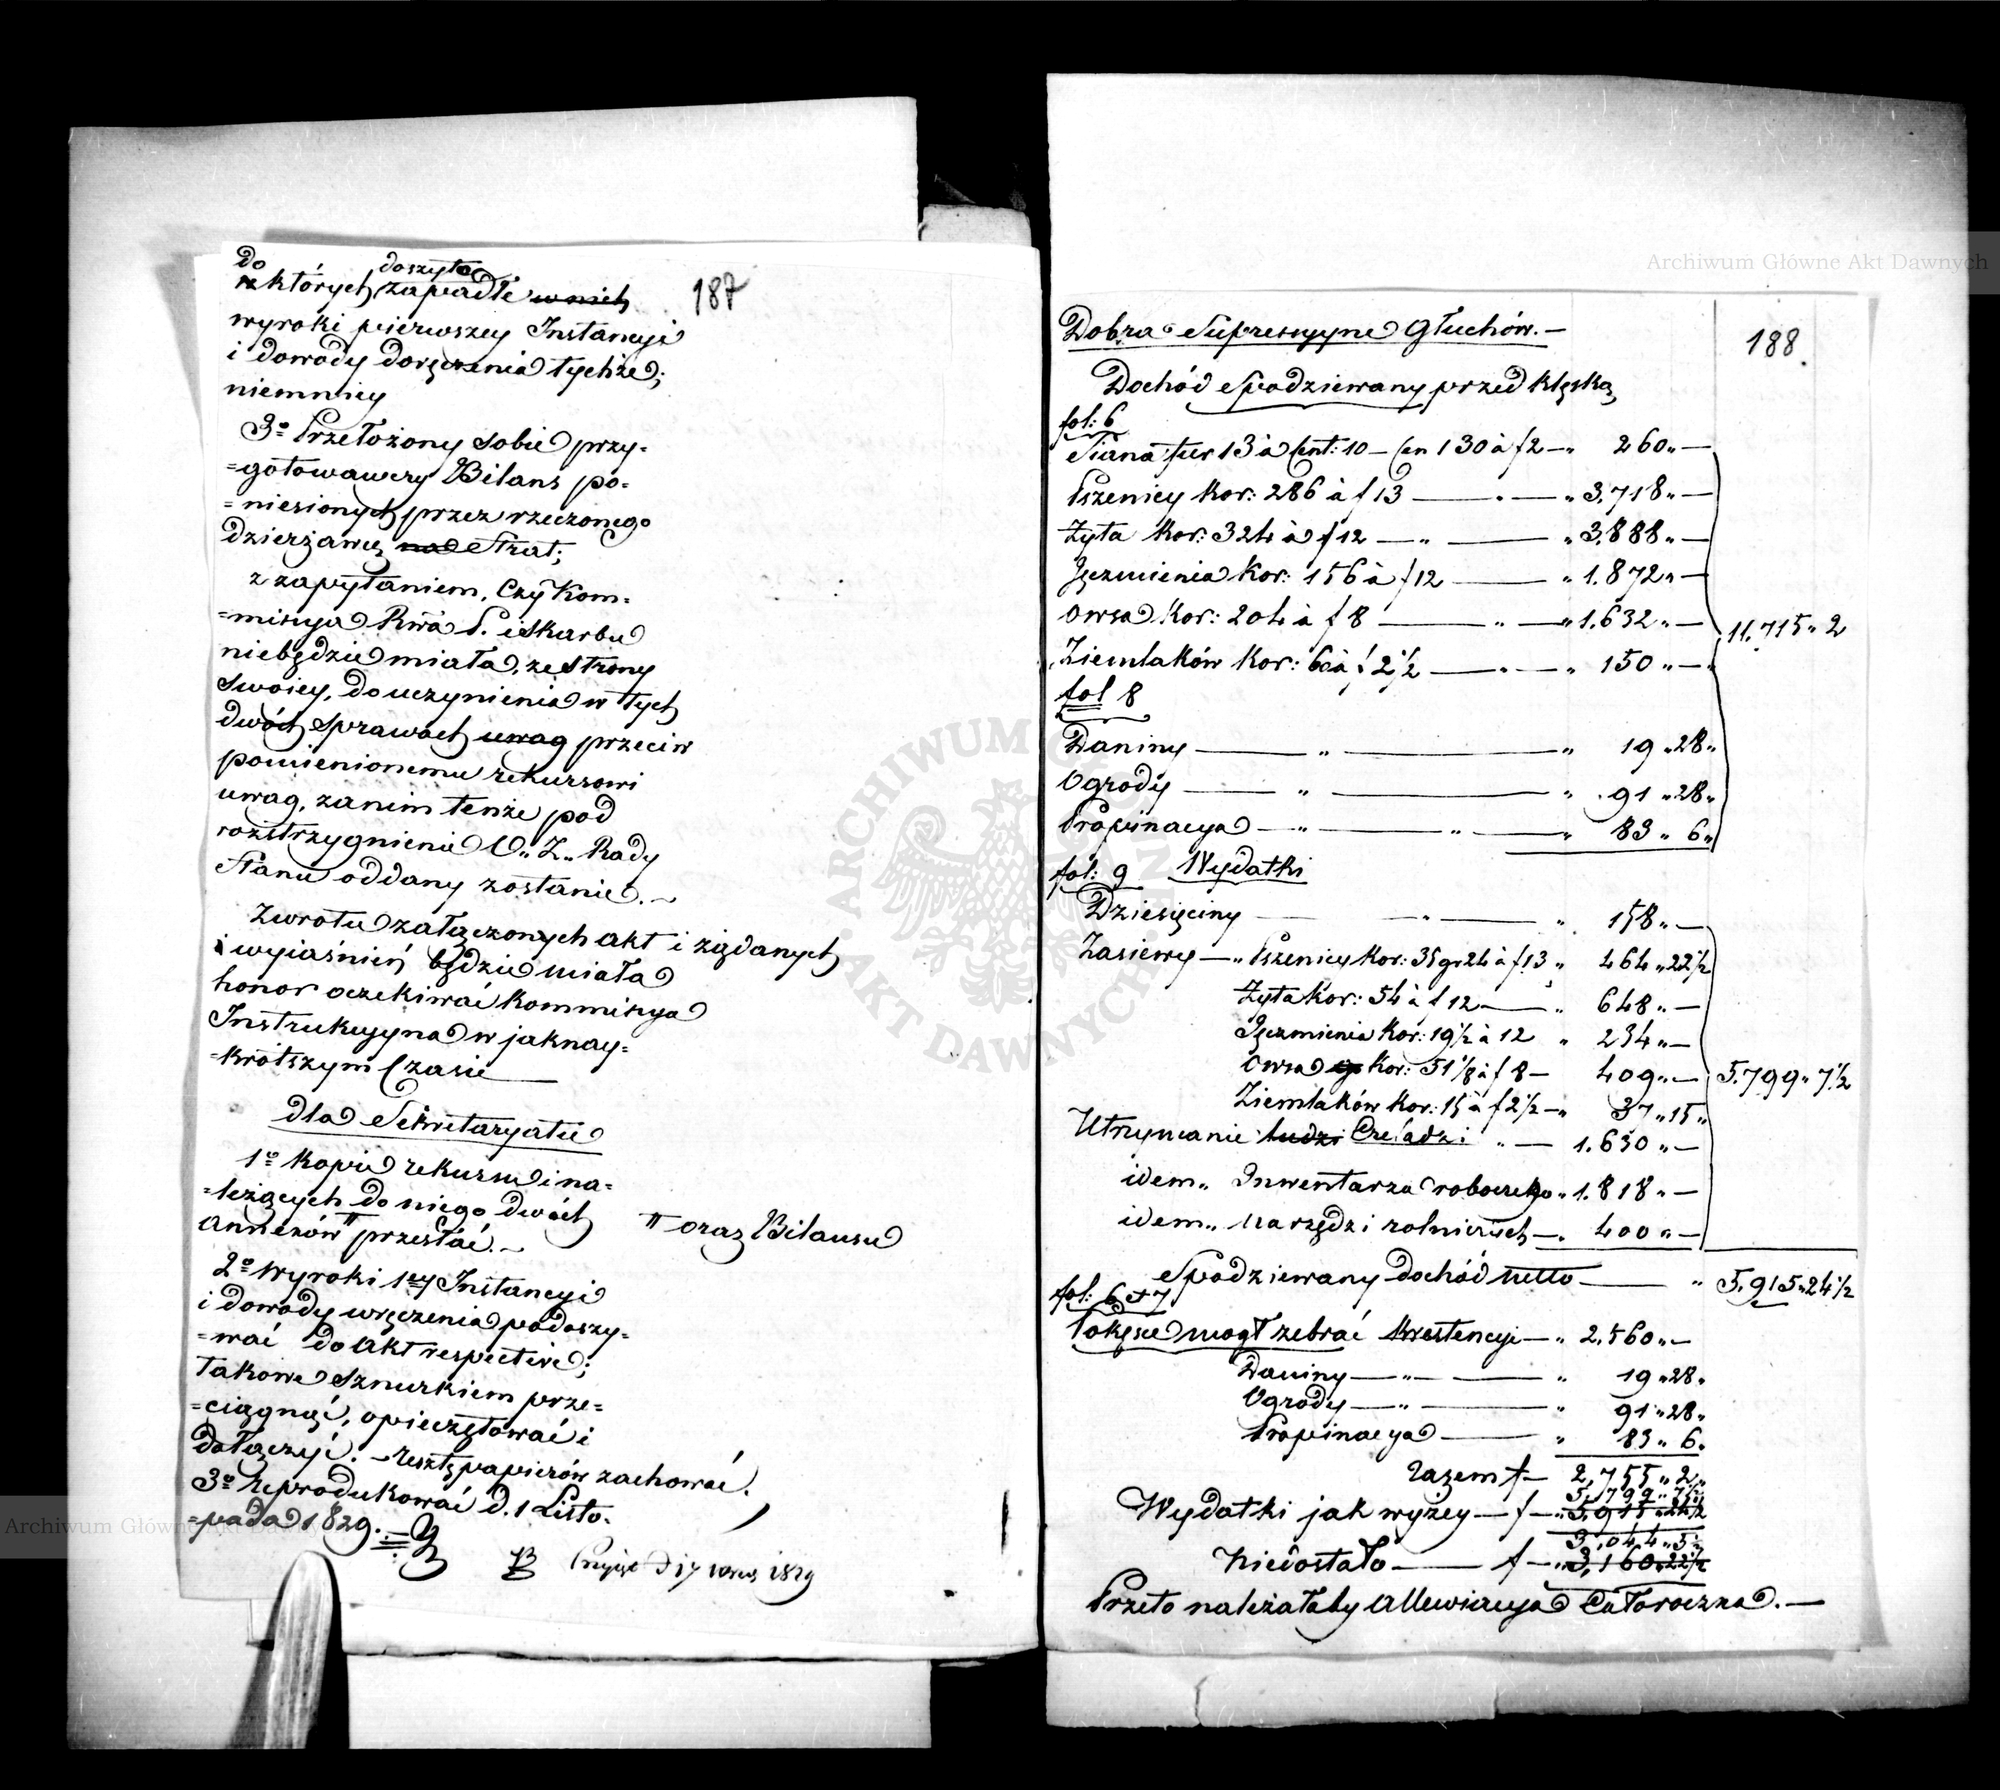 187
do doszyto
których zapadłe w nich
wyroki pierwszey Instancyi
i dowody doręczenia tychże;
niemniey
3o Przełożony sobie przy-
=gotowawczy Bilans po=
=niesionych przez rzeczonego
dzierżawcę nad Strat;
z zapytaniem, Czy Kom=
=missya Rwa P. i Skarbu
niebędzie miała, ze strony
swoiey, do uczynienia w tych
dwóch sprawach uwag przeciw
pomienionemu rekursowi
uwag, zanim tenże pod
rozstrzygnienie O„ Z„ Rady
Stanu oddany zostanie. ~
Zwrotu załączonych akt i żądanych
i wyiaśnień będzie miała
honor oczekiwać Kommissya
Instrukcyyna w jaknay=
=krótszym Czasie
dla Sekretaryatu
1o Kopie rekursu i na=
=leżących do niego dwóch
annexów przesłać. ~
oraz Bilansu
2o Wyroki 1ey Instancyi
i dowody wręczenia podoszy=
=wać do akt respective;
takowe sznurkiem prze=
=ciągnąć, opieczętować i
dołączyć. – resztę papierów zachować.
3o Reprodukować d. 1 Listo=
=pada 1829.
d 17 1829
188.
Dobra Supressyyne Głuchów. –
Dochód Spodziewany przed klęską
fol: 6
Siana fur 13 à Cent: 10 – Cen 130 à f 2 – „ 260 „ –
Pszenicy Kor: 286 à f 13 — „ — „ 3.718 „ –
Żyta Kor: 324 à f 12 — „ — „ 3.888 „ –
Jęczmienia Kor: 156 à f 12 — „ 1.872 „ –
Owsa Kor: 204 à f 8 — „ — „ 1.632 „ –
11.715 „ 2
Ziemlaków Kor: 60 à f 2 1/2 — „ — „ 150 „ –
fol 8
Daniny — „ — „ 19 „ 28 „
Ogrody — „ — „ 91 „ 28 „
Propinacya — „ — „ — „ 83 „ 6 „
fol: 9 Wydatki
Dziesięciny — „ — „ 158 „ –
Zasiewy — „ Pszenicy Kor: 35 gr 24 à f 13 „ 464 „ 22 1/2
Żyta Kor: 54 à f 12 — „ 648 „ –
Jęczmienia Kor: 19 1/2 à 12 „ 234 „ –
Owsa Kor: 51 1/8 à f 8 – 409 „ – 5.799 „ 7 1/2
Ziemlaków Kor: 15 à f 2 1/2 – „ 37 „ 15 „
Utrzymanie ludzi Czeladzi „ — 1.630 „ –
idem „ Inwentarza roboczego „ 1.818 „ –
idem „ narzędzi rolniczych – „ 400 „ –
Spodziewany dochód netto — „ 5.915 „ 24 1/2
fol: 6 et 7
Po klęsce mógł zebrać Krestencyi – „ 2.560 „ –
Daniny — „ — „ 19 „ 28 „
Ogrody — „ — „ 91 „ 28 „
Propinacya — „ 83 „ 6 „
Razem f – 2.755 „ 2 „
5.799 „ 7 1/2
Wydatki jak wyżey — f – „ 5.915 „ 24 1/2
3.044 „ 5
Niedostało — f – „ 3.160 „ 22 1/2
Przeto należałaby allewiacya Całoroczna. –
Archiwum Główne Akt Dawnych
ARCHIWUM GŁÓWNE AKT DAWNYCH
Archiwum Główne Akt Dawnych